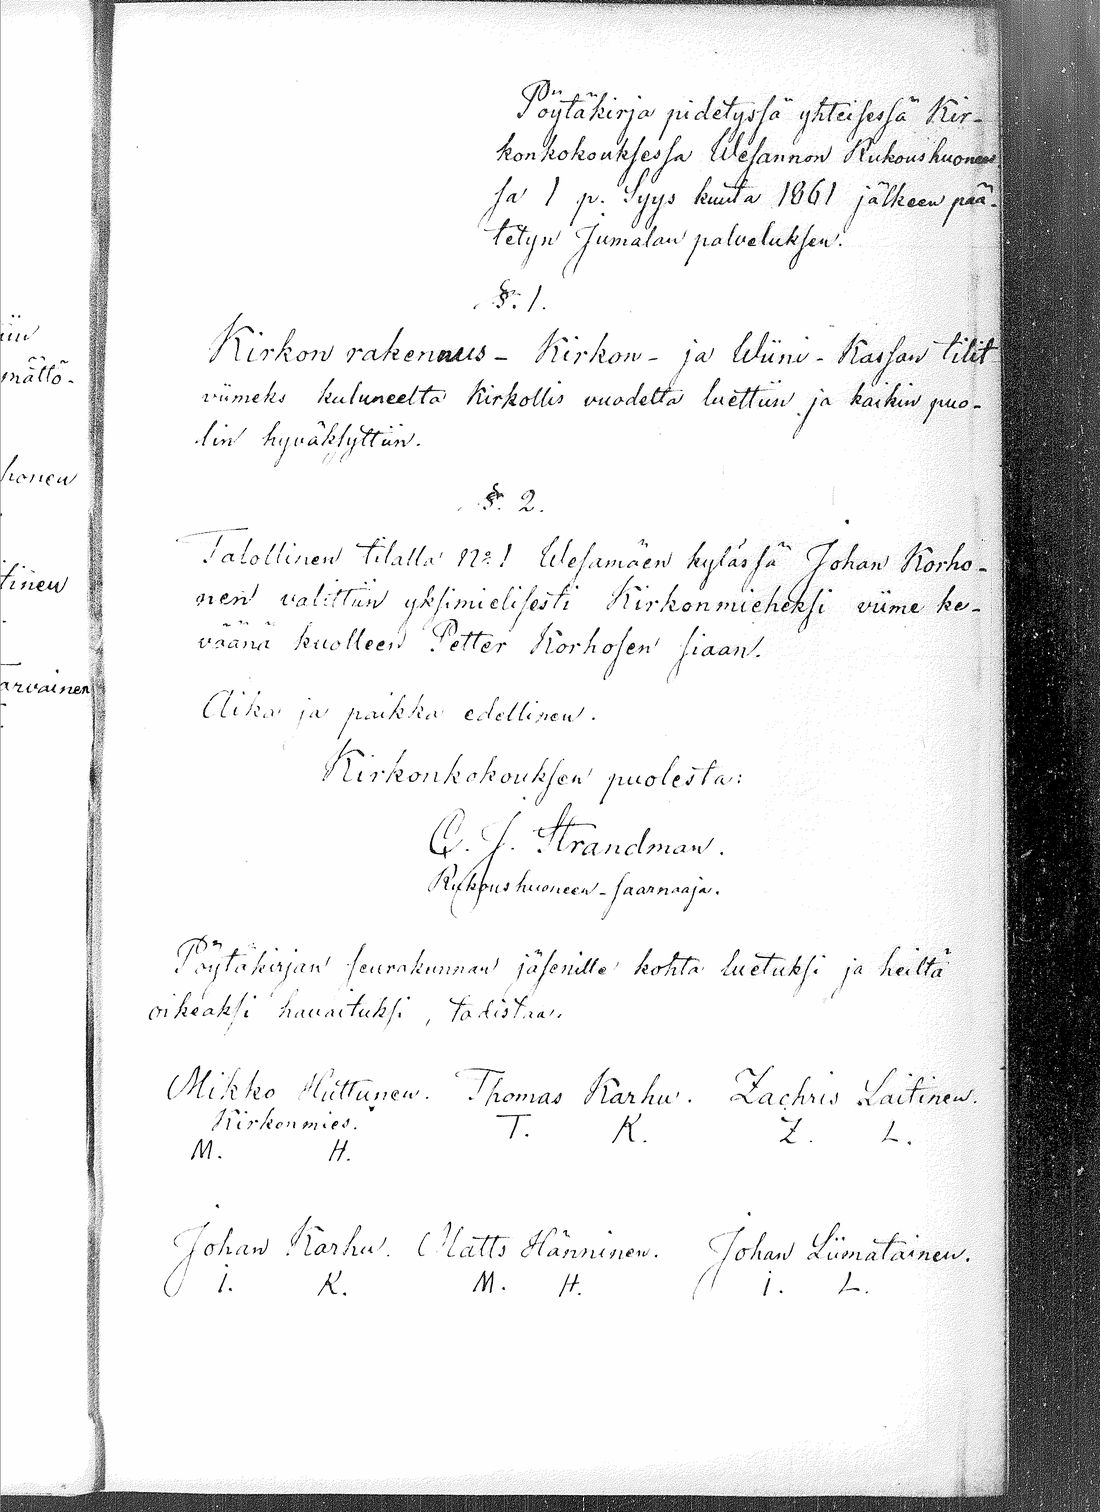 Pöytäkirja pidetyssä yhteisessä Kir-
konkokouksessa Wesannon Rukoushuonees-
sa 1 p. Syys kuuta 1861 jälkeen pää-
tetyn Jumalan palveluksen.
§. 1.
Kirkon rakennus - Kirkon - ja Wiini - Kassan tilit
viimeks kuluneelta Kirkollis vuodelta luettiin ja kaikin puo-
lin hyväksyttiin.
§. 2.
Talollinen tilalla No. 1 Wesamäen kylässä Johan Korho-
nen valittiin yksimielisesti Kirkonmieheksi viime ke-
väänä kuolleen Petter Korhosen siaan.
Aika ja paikka edellinen.
Kirkonkokouksen puolesta:
C. J. Strandman.
Rukoushuoneen-saarnaaja.
Pöytäkirjan seurakunnan jäsenille kohta luetuksi ja heiltä
oikeaksi havaituksi, todistaa.
Mikko Huttunen. Thomas Karhu. Zachris Laitinen.
Kirkonmies. T. K. Z. L.
M. H.
Johan Karhu. Matts Hänninen. Johan Liimatainen.
I. K. M. H. I. L.
iin
mättö-
honen
tinen
arvainen